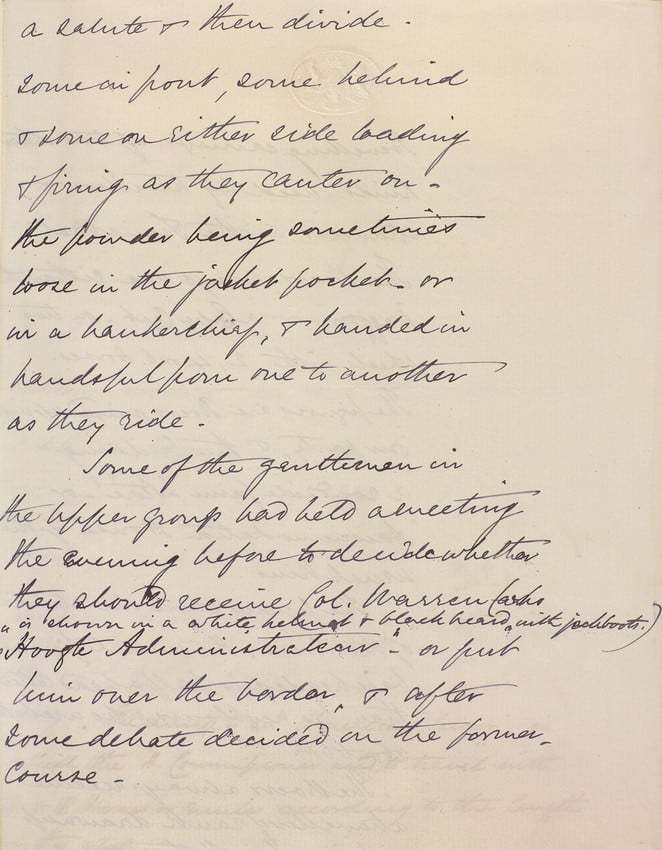 a salute & then divide.
Some in front, some behind
& some on either side loading
& firing as they canter on -
the powder being sometimes
loose in the jacket pocket - or
in a hankerchief, & handed in
handsful from one to another
as they ride -
Some of the gentlemen in
the upper group had held a meeting
the evening before to decide whether
they should receive Col. Warren (who
is shown in a white helmet & black beard, with jackboots.)
"Hoofte Administrateur" - or put
him over the border, & after
some debate decided on the former
course -